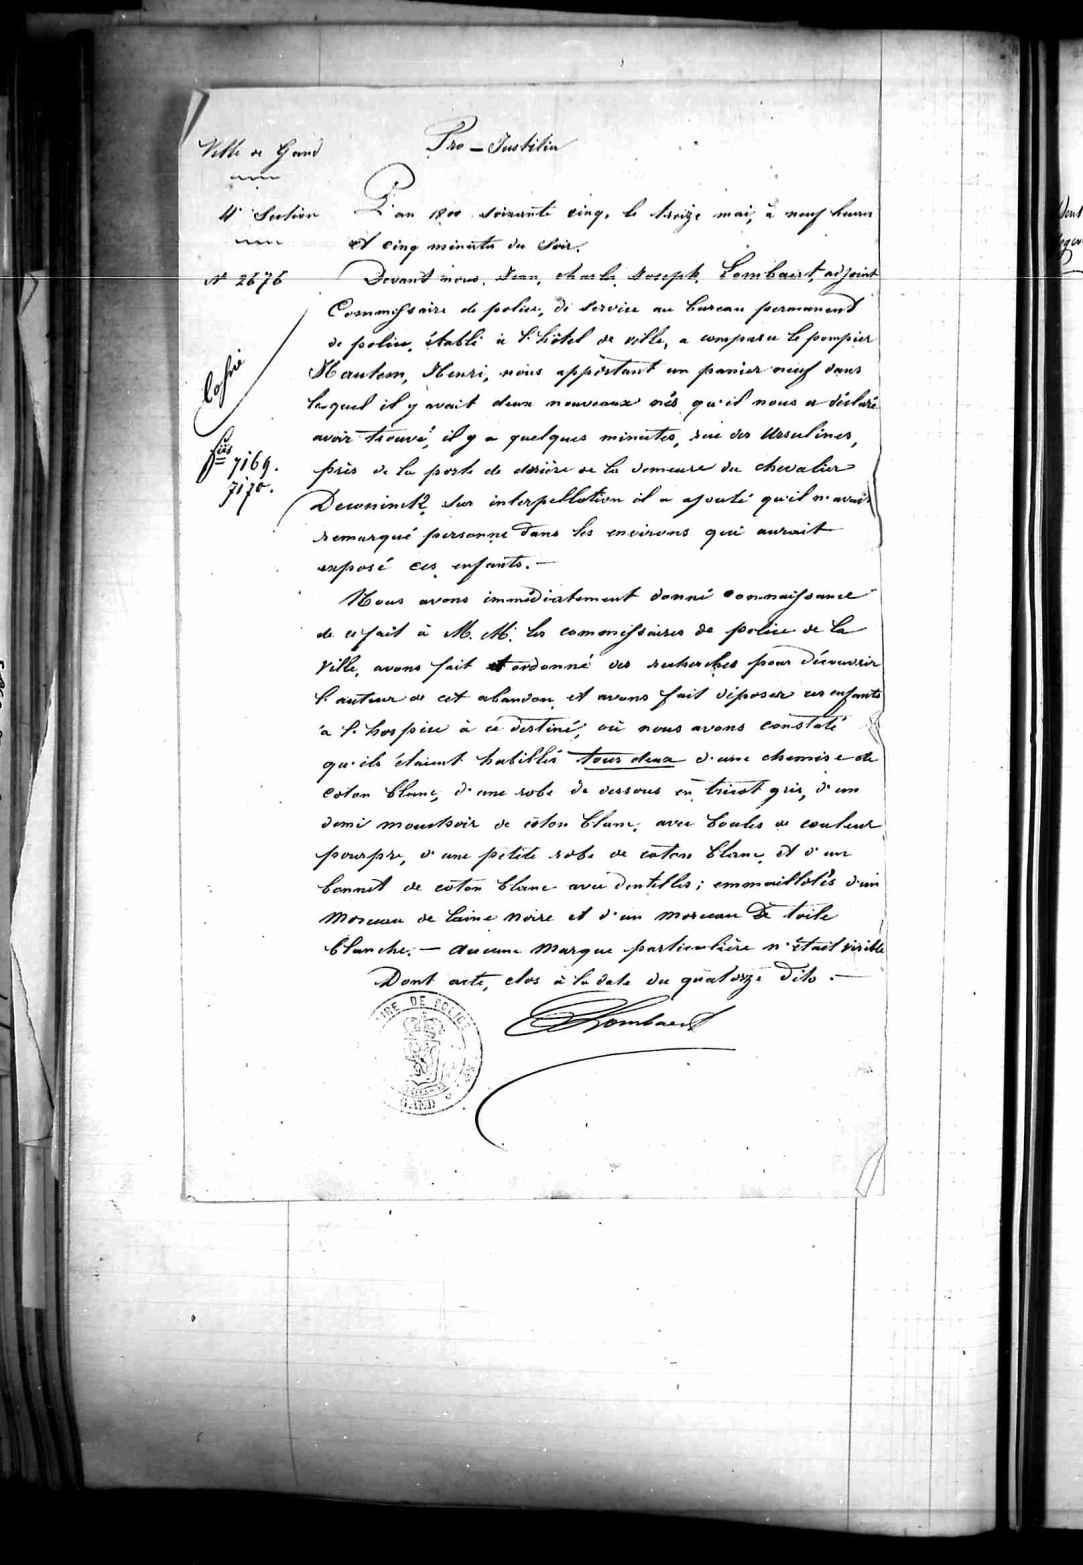 Ville de Gand
Pro-Justitia
4e Section
L'an 1800 soixante cinq, le treize mai, à neuf heures
et cinq minutes du soir.
N° 2676
Devant nous, Jean, Charles, Joseph, Lombaert, adjoint
Commissaire de police, de service au bureau permanend
de police, établi à l'hôtel de ville, a comparu le pompier
Hautem, Henri, nous apportant un panier neuf dans
lequel il y avait deux nouveaux nés qu'il nous a déclaré
Copié
avoir trouvé, il y a quelques minutes, rue des Ursulines,
7169.
près de la porte de derrière de la demeure du chevalier
7170.
Deconinck, Sur interpellation il a ajouté qu'il n'avait
remarqué personne dans les environs qui aurait
exposé ces enfants.—
Nous avons immédiatement donné connaissance
de ce fait à M.M. les commissaires de police de la
Ville, avons fait et ordonné des recherches pour découvrir
l'auteur de cet abandon, et avons fait déposer ces enfants
à l'hospice à ce destiné, où nous avons constaté
qu'ils étaient habillés tous deux d'une chemise de
coton blanc, d'une robe de dessous en tricot gris, d'un
demi mouchoir de coton blanc, avec boules de couleur
pourpre, d'une petite robe de coton blanc, et d'un
bonnet de coton blanc avec dentelles; emmaillotés d'un
morceau de laine noire et d'un morceau de toile
blanche.— aucune marque particulière n'était visible
Dont acte, clos à la date du quatorze dito.—
Lombaert
DE POLICE
GAND